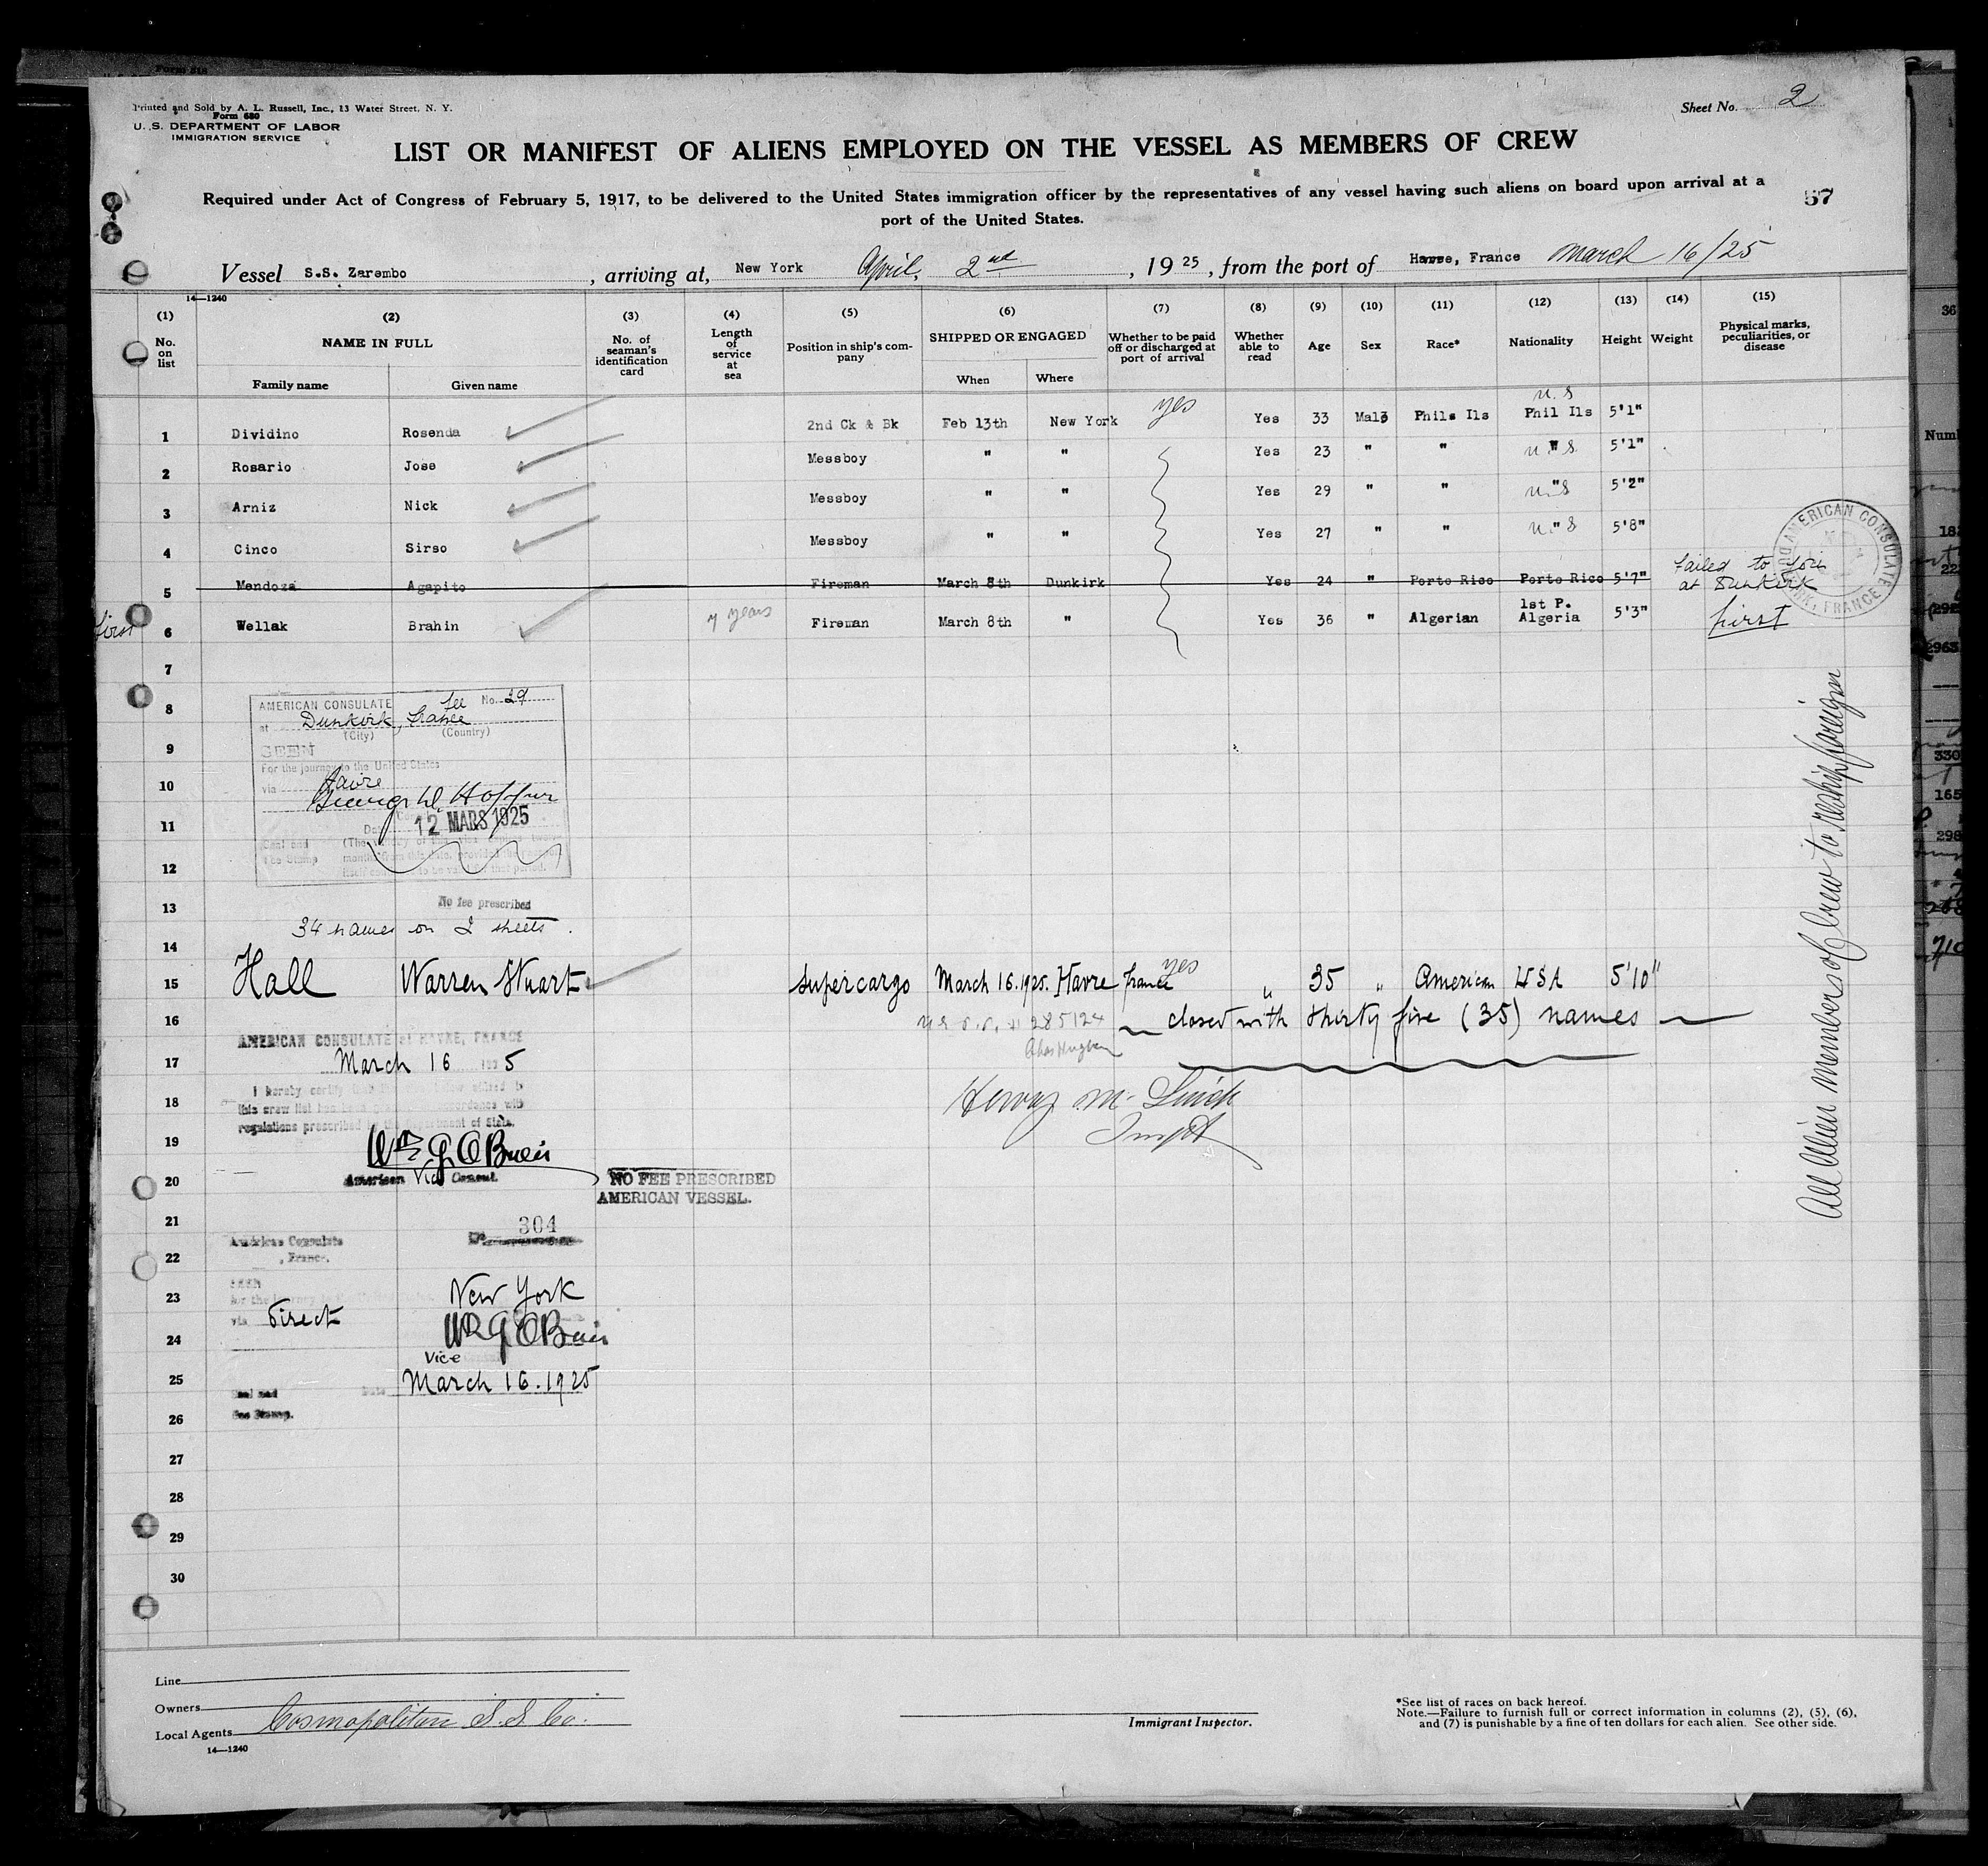 Printed and Sold by A. L. Russell, Inc., 13 Water Street, N. Y.
Form 680
U. S. DEPARTMENT OF LABOR
IMMIGRATION SERVICE
Sheet No. 2
LIST OR MANIFEST OF ALIENS EMPLOYED ON THE VESSEL AS MEMBERS OF CREW
Required under Act of Congress of February 5, 1917, to be delivered to the United States immigration officer by the representatives of any vessel having such aliens on board upon arrival at a
port of the United States.
57
Vessel S.S. Zarembo, arriving at, New York April, 2nd, 1925, from the port of Havre, France March 16/25
14—1240
(1) (2) (3) (4) (5) (6) (7) (8) (9) (10) (11) (12) (13) (14) (15)
No. on list NAME IN FULL No. of seaman's identification card Length of service at sea Position in ship's company SHIPPED OR ENGAGED Whether to be paid off or discharged at port of arrival Whether able to read Age Sex Race* Nationality Height Weight Physical marks, peculiarities, or disease
Family name Given name When Where
U.S
1 Dividino Rosenda 2nd Ck & Bk Feb 13th New York yes Yes 33 Mal3 Phils Ils Phil Ils 5'1"
2 Rosario Jose Messboy " " Yes 23 " " " U.S. 5'1"
3 Arniz Nick Messboy " " Yes 29 " " " U.S 5'2"
4 Cinco Sirso Messboy " " Yes 27 " " " U.S 5'8"
5 Mendoza Agapito Fireman March 8th Dunkirk Yes 24 " Porto Rico Porto Rico 5'7" Failed to join at Dunkirk
first 6 Wellak Brahin 7 years Fireman March 8th " Yes 36 " Algerian 1st P. Algeria 5'3" first
AMERICAN CONSULATE
DUNKIRK, FRANCE
7
8
9
10
11
12
13
14
AMERICAN CONSULATE Fee No. 29
at Dunkirk, France
(City) (Country)
SEEN
For the journey to the United States
via Havre
12 MARS 1925
No fee prescribed
34 names on 2 sheets.
15 Hall Warren Stuart Supercargo March 16.1925. Havre france yes " 35 " American USA 5'10"
16 285124 closed with thirty five (35) names
17 AMERICAN CONSULATE at HAVRE, FRANCE
March 16 1925
18 I hereby certify
this crew list has been in accordance with
regulations prescribed by the Department of State.
19 Wm G O'Brien
20 American Vice Consul.
NO FEE PRESCRIBED
AMERICAN VESSEL.
Henry M.
Inspt
All Alien members of Crew to reship foreign
21 304
22 American Consulate
, France.
SEEN
23 for the journey to the United States
New York
via Direct
24 Wm G O'Brien
Vice
25 March 16.1925
Seal and
Date
26 Fee Stamp.
27
28
29
30
Line
Owners
Local Agents Cosmopolitan S.S. Co.
14—1240
Immigrant Inspector.
*See list of races on back hereof.
Note.—Failure to furnish full or correct information in columns (2), (5), (6),
and (7) is punishable by a fine of ten dollars for each alien. See other side.